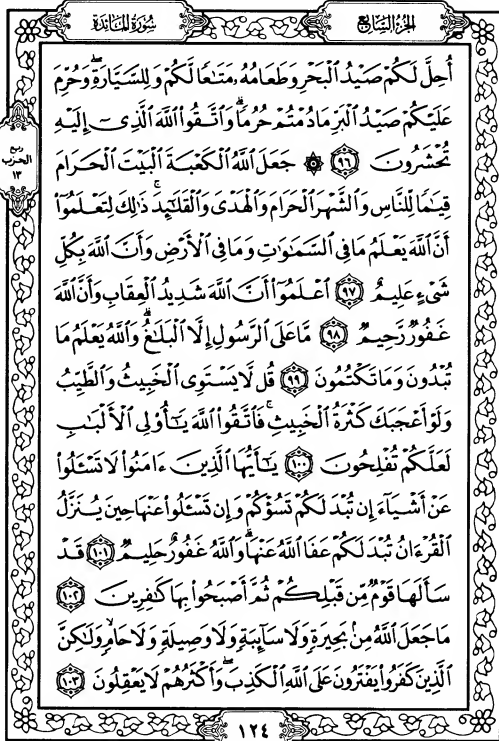 الجزء السابع
سورة المائدة
ربع
الحزب
١٣
أُحِلَّ لَكُمْ صَيْدُ ٱلْبَحْرِ وَطَعَامُهُۥ مَتَٰعًا لَّكُمْ وَلِلسَّيَّارَةِ ۖ وَحُرِّمَ
عَلَيْكُمْ صَيْدُ ٱلْبَرِّ مَا دُمْتُمْ حُرُمًا ۗ وَٱتَّقُوا۟ ٱللَّهَ ٱلَّذِىٓ إِلَيْهِ
تُحْشَرُونَ ٩٦ ۞ جَعَلَ ٱللَّهُ ٱلْكَعْبَةَ ٱلْبَيْتَ ٱلْحَرَامَ
قِيَٰمًا لِّلنَّاسِ وَٱلشَّهْرَ ٱلْحَرَامَ وَٱلْهَدْىَ وَٱلْقَلَٰٓئِدَ ۚ ذَٰلِكَ لِتَعْلَمُوٓا۟
أَنَّ ٱللَّهَ يَعْلَمُ مَا فِى ٱلسَّمَٰوَٰتِ وَمَا فِى ٱلْأَرْضِ وَأَنَّ ٱللَّهَ بِكُلِّ
شَىْءٍ عَلِيمٌ ٩٧ ٱعْلَمُوٓا۟ أَنَّ ٱللَّهَ شَدِيدُ ٱلْعِقَابِ وَأَنَّ ٱللَّهَ
غَفُورٌ رَّحِيمٌ ٩٨ مَّا عَلَى ٱلرَّسُولِ إِلَّا ٱلْبَلَٰغُ ۗ وَٱللَّهُ يَعْلَمُ مَا
تُبْدُونَ وَمَا تَكْتُمُونَ ٩٩ قُل لَّا يَسْتَوِى ٱلْخَبِيثُ وَٱلطَّيِّبُ
وَلَوْ أَعْجَبَكَ كَثْرَةُ ٱلْخَبِيثِ ۚ فَٱتَّقُوا۟ ٱللَّهَ يَٰٓأُو۟لِى ٱلْأَلْبَٰبِ
لَعَلَّكُمْ تُفْلِحُونَ ١٠٠ يَٰٓأَيُّهَا ٱلَّذِينَ ءَامَنُوا۟ لَا تَسْـَٔلُوا۟
عَنْ أَشْيَآءَ إِن تُبْدَ لَكُمْ تَسُؤْكُمْ وَإِن تَسْـَٔلُوا۟ عَنْهَا حِينَ يُنَزَّلُ
ٱلْقُرْءَانُ تُبْدَ لَكُمْ عَفَا ٱللَّهُ عَنْهَا ۗ وَٱللَّهُ غَفُورٌ حَلِيمٌ ١٠١ قَدْ
سَأَلَهَا قَوْمٌ مِّن قَبْلِكُمْ ثُمَّ أَصْبَحُوا۟ بِهَا كَٰفِرِينَ ١٠٢
مَا جَعَلَ ٱللَّهُ مِنۢ بَحِيرَةٍ وَلَا سَآئِبَةٍ وَلَا وَصِيلَةٍ وَلَا حَامٍ ۙ وَلَٰكِنَّ
ٱلَّذِينَ كَفَرُوا۟ يَفْتَرُونَ عَلَى ٱللَّهِ ٱلْكَذِبَ ۖ وَأَكْثَرُهُمْ لَا يَعْقِلُونَ ١٠٣
١٢٤